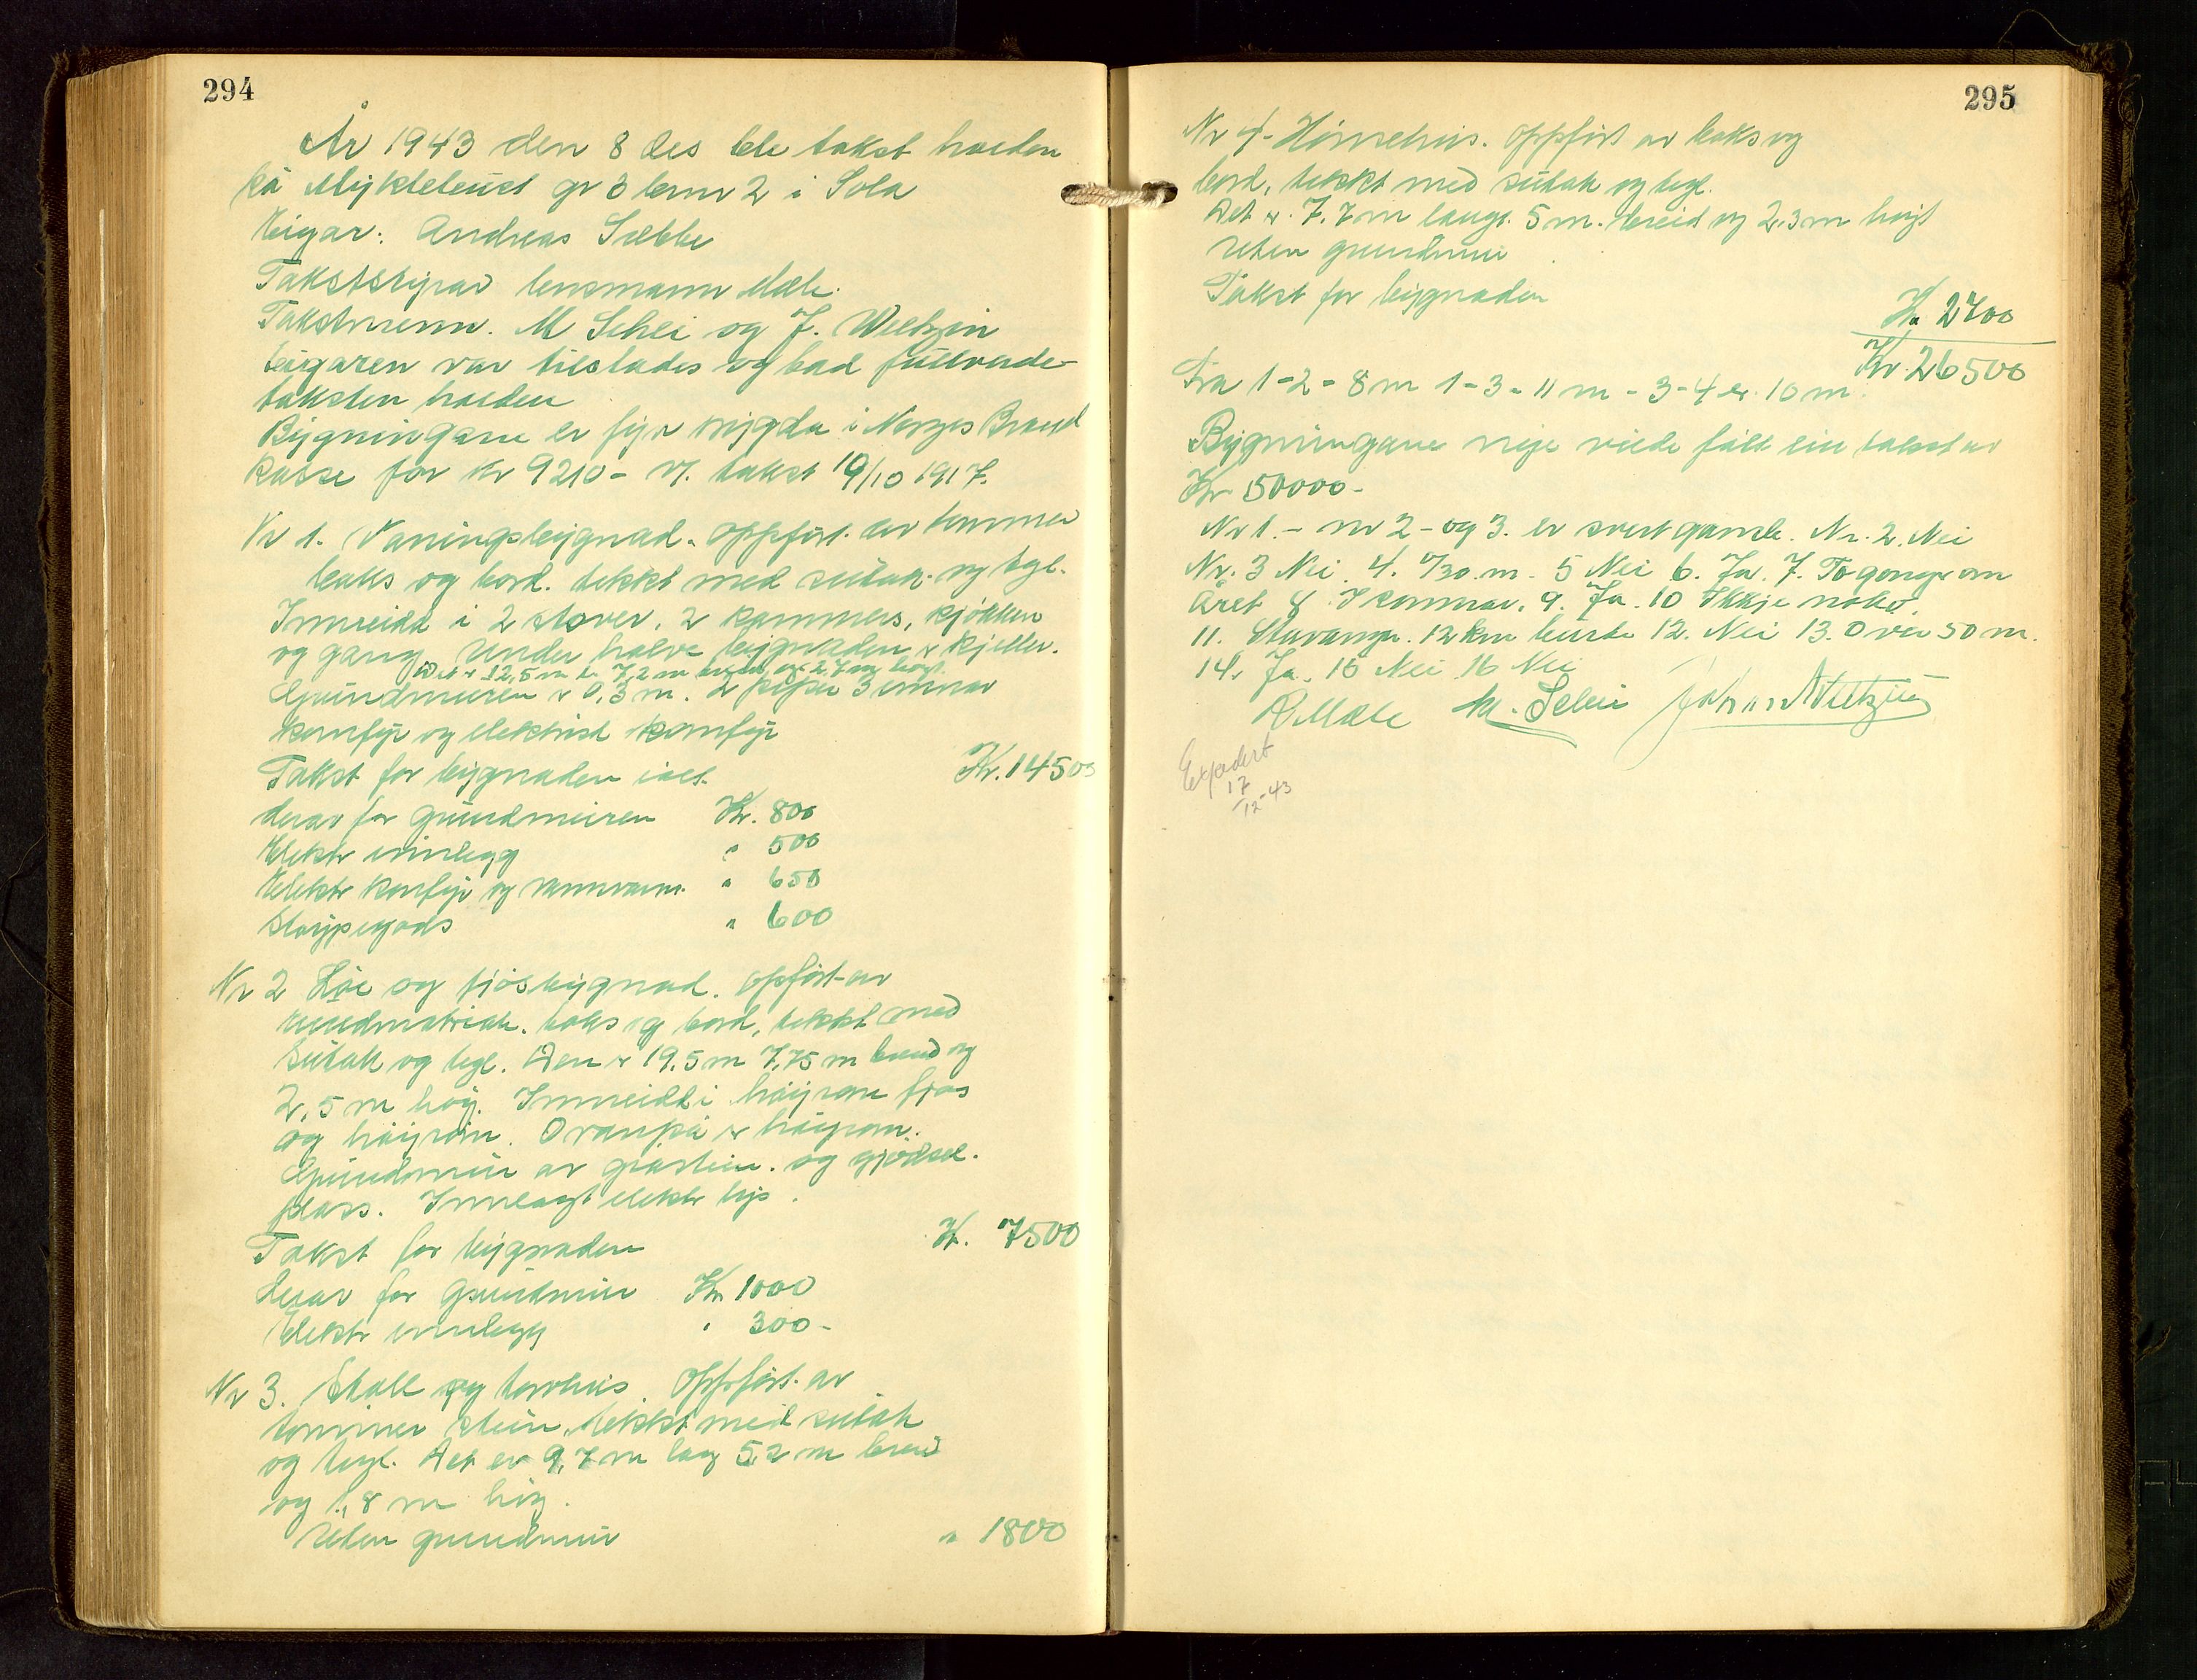 294
År 1943 den 8 des ble takst halden
på Myklebust gr 3 bnr 2 i Sola
Eigar: Andreas Sæbbe
Takststyrar lensmann Mæle.
Takstmenn. M Selei og J. Weltzin
Eigaren var tilstades og bad fullverde-
taksten halden
Bygningane er fyr trygda i Norges Brand
kasse for kr 9210- v/. takst 19/10 1917.
Nr 1. Vaningsbygnad. oppført av tømmer
baks og bord. tekkt med sutak og tegl.
Innreidd i 2 stover, 2 kammers, kjøkken
og gang Under halve bygnaden er kjeller.
Det er 12,5 m l. 7,2 m breid og 2,7 m høgt.
Grundmuren er 0,3 m. 2 piper 3 omnar
komfyr og elektrisk komfyr
Takst for bygnaden ialt Kr. 14500
derav for grundmuren Kr. 800
Elektr innlegg " 500
Elektr komfyr og vannvarm. " 650
Støypegods " 600
Nr 2 Løe og fjøsbygnad. oppført av
bindmatriale. baks og bord, tekkt med
sutak og tegl. Den er 19.5 m 7,75 m breid og
2,5 m høg. Innreidd i høyrom fjøs
og høyrom. Ovanpå er høyrom.
Grundmur av gråstein. og gjødsel.
plass. Innlagt elektr lys.
Takst for bygnaden Kr. 7500
derav for grundmur Kr 1000
Elektr innlegg " 300-
Nr 3. Stall og torvhus. Oppført av
tømmer stein, tekkt med sutak
og tegl. Det er 9,7 m lang 5,2 m breid
og 1,8 m høg.
Uten grundmur " 1800
295
Nr 4- Hønsehus. oppført av baks og
bord, tekkt med sutak og tegl.
Det er 7.7 m langt. 5 m. breid og 2,3 m høgt
Uten grundmur
Takst for bygnaden
Kr 2700
Kr. 26500
Fra 1-2 = 8 m 1-3 = 11 m - 3-4 er 10 m.
Bygningane nye vilde fått ein takst av
Kr 50000-
Nr 1. - nr 2 - og 3. er svert gamle. Nr. 2. Nei
Nr. 3 Nei. 4. 0/30 m. 5 Nei 6. Ja. 7. To gonger om
Året 8 I kommar. 9. Ja. 10 Ikkje noko.
11. Stavanger. 12 km burte 12. Nei 13. Over 50 m.
14. Ja. 15 Nei 16 Nei
Mæle M. Selei Johan Weltzin
Expedert
17
/12-43